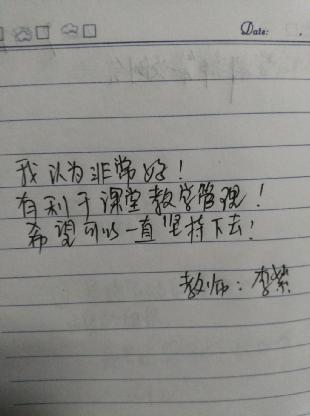 Date:
我认为非常好！
有利于课堂教学管理！
希望可以一直坚持下去！
教师：李紫